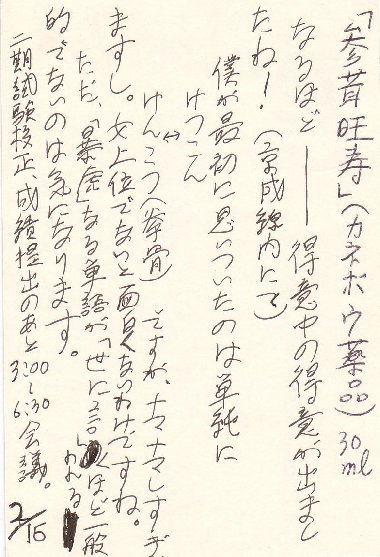 「参茸旺寿」(カネボウ薬品) 30ml
なるほど——得意中の得意が出まし
たね!(京成線内にて)
僕が最初に思いついたのは単純に
けっこん
↔
げんこつ(拳骨) ですが、ナマナマしすぎ
ますし。女上位でないと面白くないわけですね。
ただ、「暴虐」なる単語が、「世に言」くほど一般
われる
的でないのは気になります。
二期試験校正、成績提出のあと 3:00〜6:30 会議。
2/16